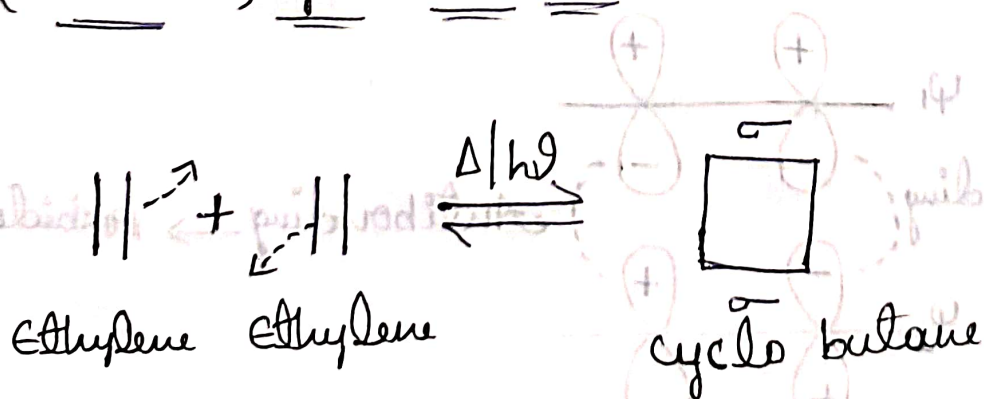 Δ/hϑ
+
σ
σ
Ethylene Ethylene cyclo butane